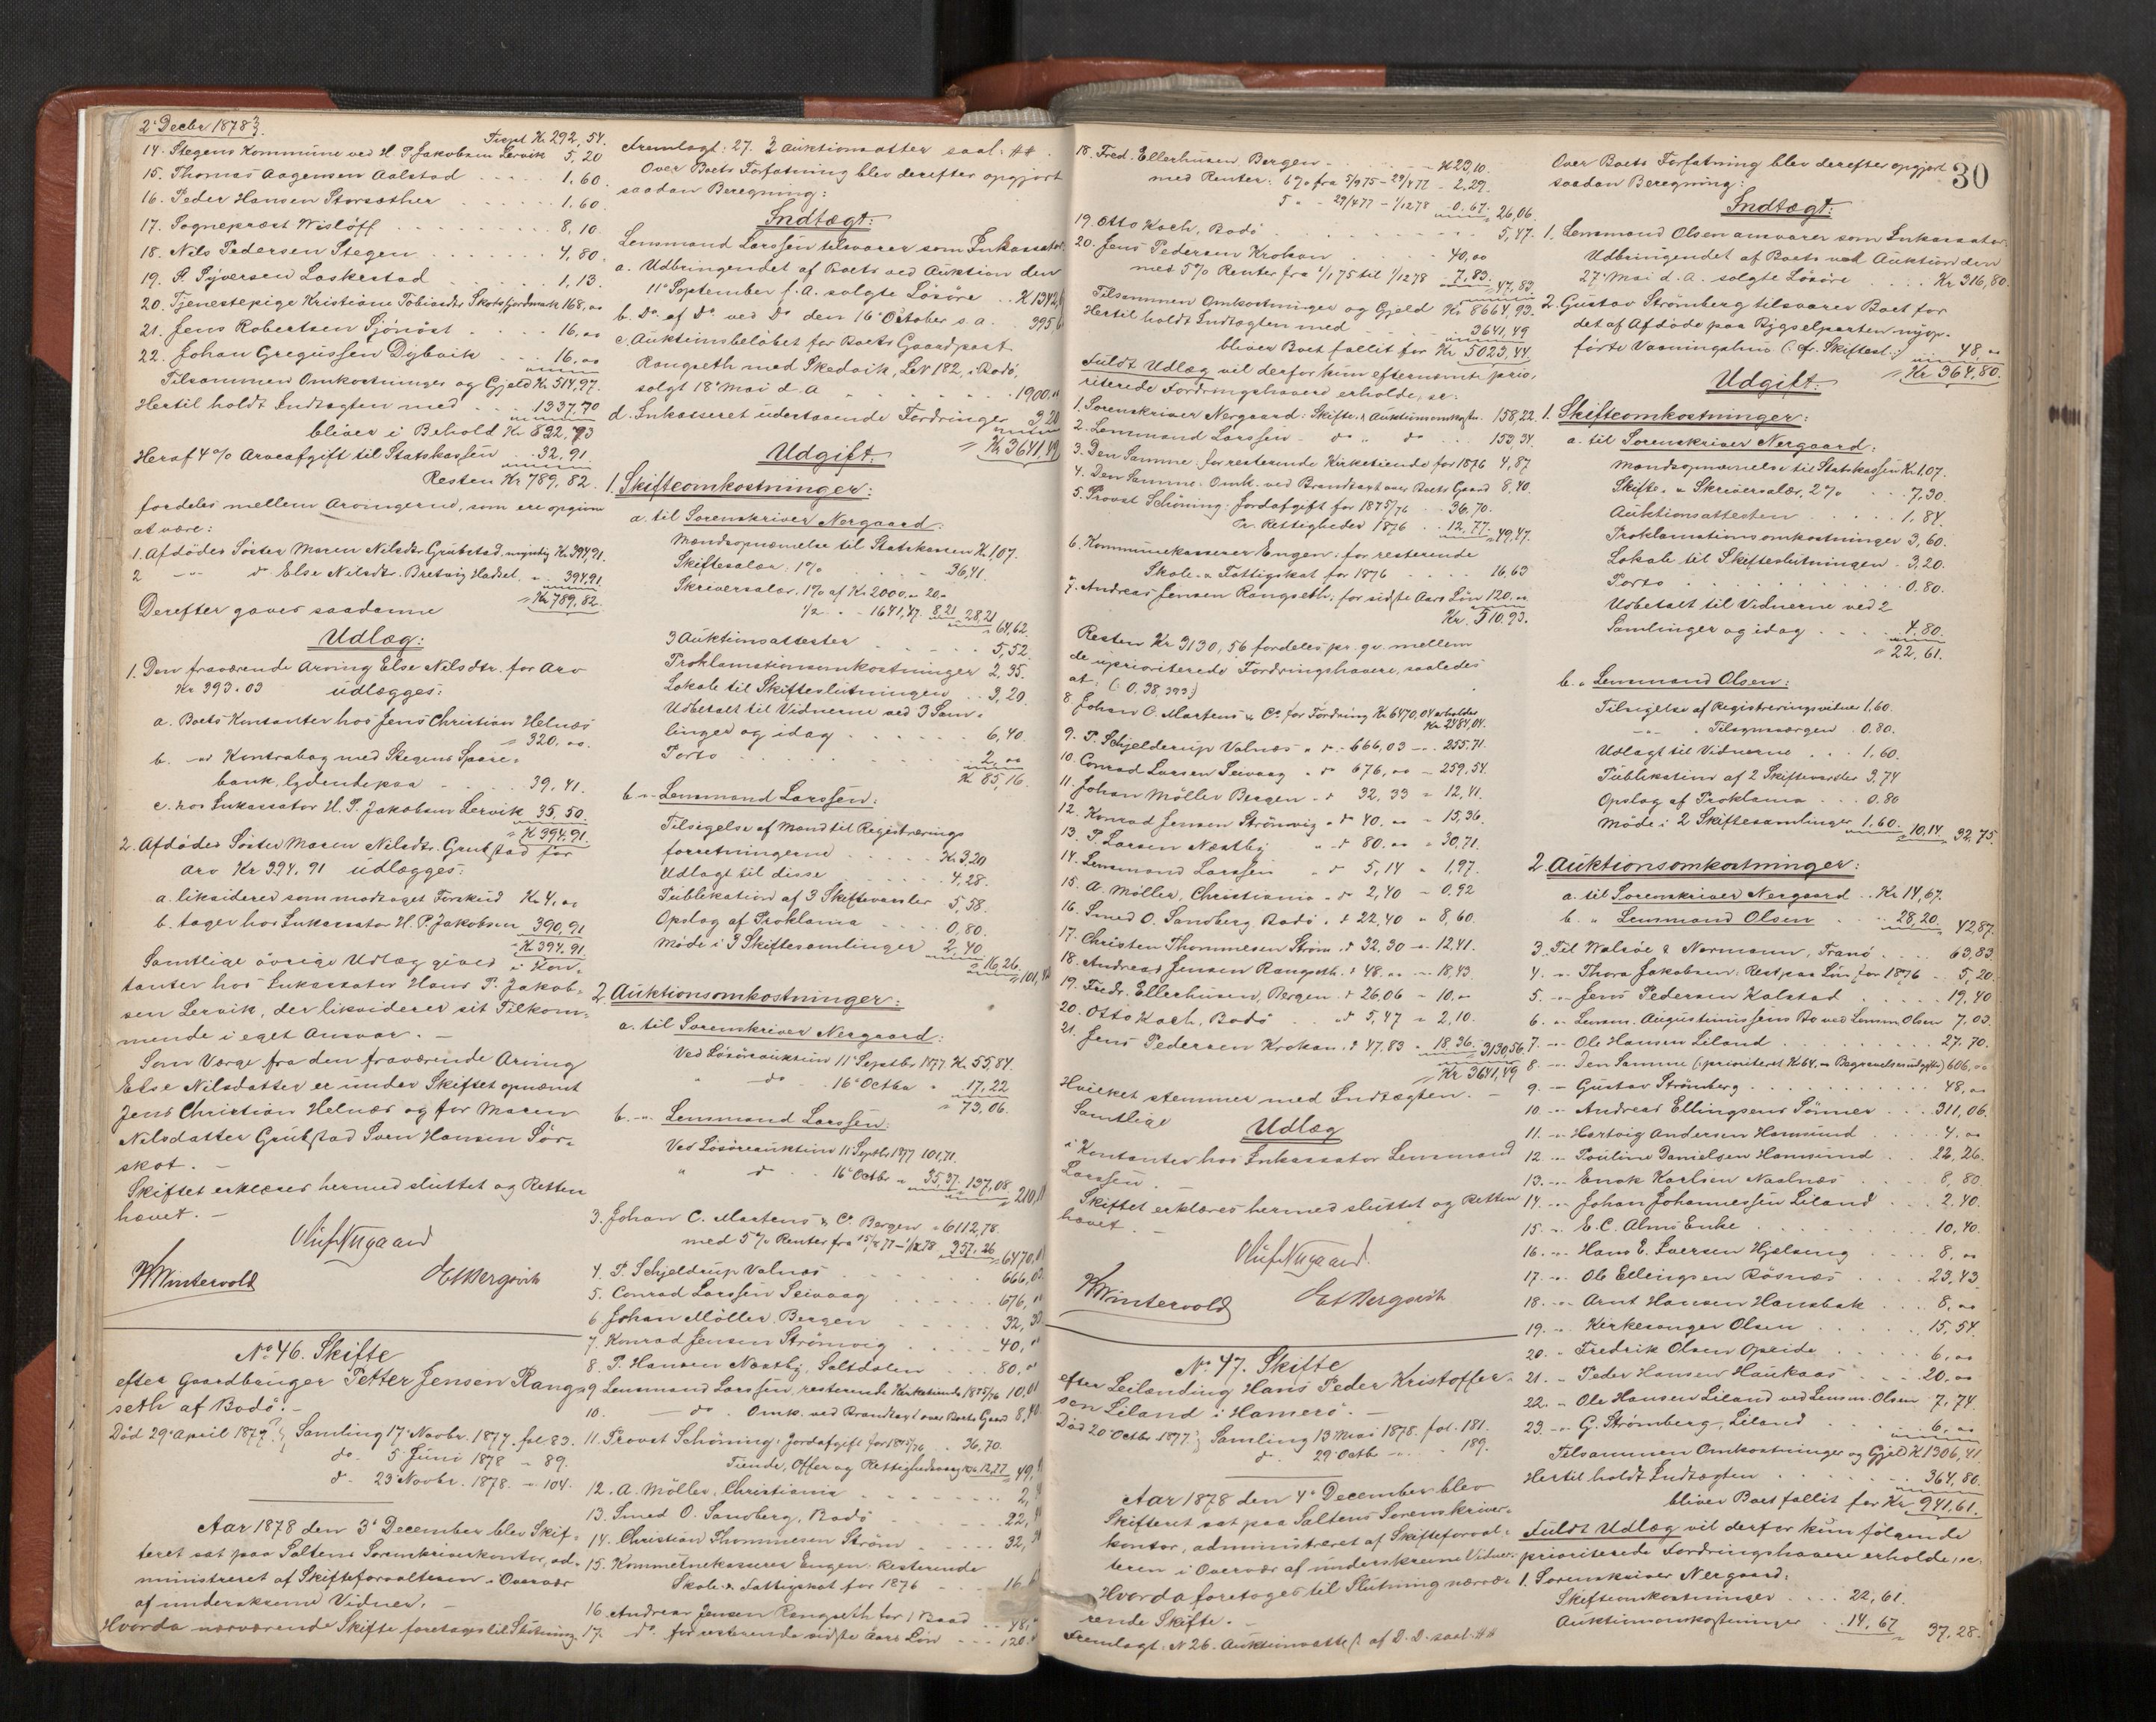 2' Decbr 1878
Tispt Kr. 292,54.
14. Stegens Kommune ved H. P. Jakobsen Lervik 5,20
15. Thomas Aagensen Aalstad 1,60.
16. Peder Hansen Storsæther 1,60.
17. Sognepræst Wisløff 8,10.
18. Nils Pedersen Stegen 4,80.
19. P. Syversen Laskestad 1,13.
20. Tjenestepige Kristiane Tobiasdtr. Skotsfjordmark 168,"
21. Jens Robertsen Sjönöst 16,"
22. Johan Gregussen Dybvik 16,"
Tilsammen Omkostninger og Gjeld Kr. 514,97.
Hertil holdt Indtægten med 1337,70
bliver i Behold Kr 822,73
Heraf 4% Arveafgift til Statskassen 32,91.
Resten Kr. 789,82.
fordeles mellem Arvingerne, som ere opgivne
at være:
1. Afdødes Søster Maren Nilsdtr. Grubstad, myndig Kr. 394,91.
2 -"- d. Else Nilsdtr. Bretvig Hadsel " 394,91
Kr. 789,82.
Derefter gaves saadanne
Udlæg:
1. Den fraværende Arving Else Nilsdtr. for Arv
Kr. 393.03 udlægges:
a. Boets Kontanter hos Jens Christian Helnæs
320,"
b. " Kontrabog med Stegens Spare-
bank, lydende paa 39,41.
c. hos Inkassator H. P. Jakobsen Lervik 35,50.
Kr 394,91.
2. Afdødes Söster Maren Nilsdtr. Grubstad for
Arv Kr 394,91 udlægges:
a. likviderer som modtaget Forskud Kr. 4,"
b. tager hos Inkassator H. P. Jakobsen 390,91
Kr. 394,91.
Samtlige övrige Udlæg gives i Kon-
tanter hos Inkassator Hans P. Jakob-
sen Lervik, der likviderer sit Tilkom-
mende i eget Ansvar. –
Som Værge fra den fraværende Arving
Else Nilsdatter er under Skiftet opnævnt
Jens Christian Helnæs og for Maren
Nilsdatter Grubstad Sven Hansen Sör-
skot. –
Skiftet erklæres hermed sluttet og Retten
hævet. –
Oluf Nygaard
H Wintervold
E Bergsvik
No. 46. Skifte
efter Gaardbruger Petter Jensen Rang-
seth af Bodö. –
Död 29' April 1877. Samling 17' Novbr. 1877. fol 83.
do. 5 Juni 1878 " 89.
d. 23' Novbr. 1878. " 104.
Aar 1878 den 3' December blev Skif-
teret sat paa Saltens Sorenskriverkontor, ad-
ministreret af Skifteforvalteren i Overvær
af underskrevne Vidner. –
Hvorda nærværende Skifte foretages til Slutning.
Fremlagt: 27. 3 Auktionsatter saal. ##.
Over Boets Forfatning blev derefter opgjort
saadan Beregning:
Indtægt:
Lensmand Larssen tilsvarer som Inkassator
a. Udbringendet af Boets ved Auktion den
11' September f. A. solgte Lösöre Kr 1342,
b. Do. af Do ved Do den 16' October s. a. 395,
c. Auktionsbelöbet for Boets Gaardpart
Rangseth med Skedvik, LN 182, i Bodö,
solgt 18' Mai d. A 1900."
d. Inkasseret udestaaende Fordringer 3,20
Kr. 3641,49
Udgift:
1. Skifteomkostninger:
a. til Sorenskriver Nergaard:
Mandsopnævnelse til Statskassen Kr. 1,07.
Skiftesalær, 1% 36,41.
Skriversalær. 1% af Kr. 2000." 20."
1/2 " " 1641,47. 8,21 28,21
64,62.
3 Auktionsattester 5,52.
Proklamationsomkostninger 2,35.
Lokale til Skifteslutningen 3,20.
Udbetalt til Vidnerne ved 3 Sam-
linger og idag 6,40.
Porto 2,"
Kr 85,16.
b. " Lensmand Larssen:
Tilsigelse af Mænd til Registrerings
forretningerne Kr. 3,20
Udlagt til disse 4,28.
Publikation af 3 Skiftevarsler 5,58.
Opslag af Proklama 0,80.
Möde i 3 Skiftesamlinger 2,40
16,26. 101,42
2. Auktionsomkostninger:
a. til Sorenskriver Nergaard:
Ved Lösöreauktion 11' Septbr 1877 Kr. 55,84.
" do 16' Octbr " 17,22
73,06.
b. " Lensmand Larssen:
Ved Lösöreauktion 11' Septbr 1877 101,71.
" d " 16' Octbr " 35,37. 137,08. 210,1
3. Johan C. Martens & Co. Bergen " 6112,78.
med 5% Renter fra 357,26 6470,0
4. P. Schjeldrup Valnæs 666,03
5. Conrad Larssen Seivaag 676,"
6 Johan Möller, Bergen 32,3
7. Konrad Jensen Strömvig 40,"
8. P. Hansen Næstby, Saltdalen 80,"
9 Lensmand Larssen, resterende Kirketiende 1875/76 10,0
10. – do. Omk. ved Brandtaxt over Boets Gaard 8,40
11. Provst Schöning: Jordafgift for 1875/76 36,70.
Tiende, Offer og Rettigheder 1876 12,77 49,
12. A. Möller, Christiania 2,
13. Smed O. Sandberg, Bodö 22,
14. Christian Thommesen Ström 32,
15. Kommunekasserer Engen: Resterende
Skole- & Fattigskat for 1876 16,6
16. Andreas Jensen Rangseth for 1 Baad 48,"
17. do. for resterende sidste Aars Lön 120."
18. Fred. Ellerhusen, Bergen Kr 23,10.
med Renter: 6% fra 5/9 75 – 29/4 77 2,29.
5 " 29/4 77 – 1/12 78 0,67. 26,06.
19. Otto Koch, Bodö 5,47.
20. Jens Pedersen Krokan 40,"
med 5% Renter fra 1/1 75 til 1/12 78 7,83. 47,83.
Tilsammen Omkostninger og Gjeld Kr 8664,93.
Hertil holdt Indtægten med 3641,49
bliver Boet fallit for Kr 5023,44.
Fuldt Udlæg vil derfor kun efternævnte prio-
riterede Fordringshavere erholde, se:
1. Sorenskriver Nergaard: Skifte- & Auktionsomkostn. 158,22.
2. Lensmand Larssen – do " do 153,34.
3. Den Samme: for resterende Kirketiende for 1876 4,87
4. Den Samme. Omk. ved Brandtaxt over Boets Gaard 8,40.
5. Provst Schöning: Jordafgift for 1875/76 36,70.
Pr. Rettigheder 1876 12,77. 49,47.
6. Kommunekasserer Engen: for resterende
Skole- & Fattigskat for 1876 16,63
7. Andreas Jensen Rangseth: for sidste Aars Lön 120."
Kr. 510,93.
Resten Kr 3130,56 fordeles pr. qv. mellem
de uprioriterede Fordringshavere, saaledes
at: (: 0,38,393:)
8. Johan C. Martens & Co. for Fordring Kr 6470,04 erholder
Kr 2484,04.
9. P. Schjelderup Valnæs " d " 666,03 – " 255,71.
10. Conrad Larsen Seivaag " d 676," – 259,54.
11. Johan Möller Bergen " d 32,33 " 12,41.
12. Konrad Jensen Strömvig " d 40." " 15,36.
13. P. Larsen Næstby " d 80." " 30,71.
14. Lensmand Larssen " d 5,14 " 1,97.
15. A. Möller, Christiania " d 2,40 " 0,92
16. Smed O. Sandberg Bodö " d 22,40 " 8,60.
17. Christen Thommesen Ström " d 32,30 " 12,41.
18. Andreas Jensen Rangseth " d 48," " 18,43.
19. Fredr. Ellerhusen, Bergen " d 26,06 " 10."
20. Otto Koch, Bodö " d 5,47 " 2,10.
21. Jens Pedersen Krokan " d 47,83 " 18,36. 3130,56.
Kr. 3641,49
Hvilket stemmer med Indtægten. –
Samtlige
Udlæg
i Kontanter hos Inkassator Lensmand
Larssen. –
Skiftet erklæres hermed sluttet og Retten
hævet. –
Oluf Nygaard
H Wintervold
E Bergsvik
No. 47. Skifte
efter Leilænding Hans Peder Kristoffer-
sen Liland i Hamerö. –
Död 20' Octbr 1877. Samling 13 Mai 1878. fol. 181.
d. 29' Octb " " 189.
Aar 1878 den 4' December blev
Skifteret sat paa Saltens Sorenskriver-
kontor, administreret af Skifteforval-
teren i Overvær af underskrevne Vidner.
Hvorda foretoges til Slutning nærvæ-
rende Skifte. –
Fremlagt: N 26. Auktionsattest af D. D. saal. ##
30
Over Boets Forfatning blev derefter opgjort
saadan Beregning:
Indtægt:
1. Lensmand Olsen ansvarer som Inkassator
Udbringendet af Boets ved Auktion den
27' Mai d. A. solgte Lösöre Kr 316,80.
2. Gustav Strömberg tilsvarer Boet for
det af Afdöde paa Bygselparten nyop-
förte Vaaningshus (: cf. Skiftesl.:) 48,"
Kr 364,80.
Udgift:
1. Skifteomkostninger:
a. til Sorenskriver Nergaard:
Mandsopnævnelse til Statskassen Kr. 1,07.
Skifte- & Skriversalær, 2% 7,30.
Auktionsattesten 1,84.
Proklamationsomkostninger 3,60.
Lokale til Skifteslutningen 3,20.
Porto 0,80.
Udbetalt til Vidnerne ved 2
Samlinger og idag 4,80.
22,61.
b. " Lensmand Olsen:
Tilsigelse af Registreringsvidner 1,60.
-"- " Tilsynsværgen 0,80.
Udlagt til Vidnerne 1,60.
Publikation af 2 Skiftevarsler 3,74
Opslag af Proklama 0,80
Möde i 2 Skiftesamlinger 1,60. 10,14. 32,75.
2 Auktionsomkostninger:
a. til Sorenskriver Nergaard Kr 14,67.
b. " Lensmand Olsen 28,20. 42,87.
3. Til Walsöe & Normann, Tranö 63,83.
4. " Thora Jakobsen: Rest paa Lön for 1876 5,20.
5. " Jens Pedersen Kalstad 19,40
6. " Lensm. Augustinussens Bo ved Lensm Olsen 7,03.
7. " Ole Hansen Liland 27,70.
8. " Den Samme (: prioriteret Kr 64," Begravelsesudgifter) 606,"
9. " Gustav Strömberg 48,"
10. " Andreas Ellingsens Sönner 311,06.
11. " Hartvig Andersen Hamsund 4,"
12. " Pauline Danielsen Hamsund 22,26.
13. " Enok Karlsen Naalnæs 8,80.
14. " Johan Johannessen Liland 2,40.
15. " E. C. Alms Enke 10,40.
16. " Hans E. Iversen Hjelseng 8,"
17. " Ole Ellingsen Rösnæs 23,43
18. " Arnt Hansen Hansbak 8,"
19. " Kirkesanger Olsen 15,54.
20. " Fredrik Olsen Opeide 6,"
21. " Peder Hansen Haukaas 20,"
22. " Ole Hansen Liland ved Lensm. Olsen 7,74.
23. " G. Strömberg, Liland 6,"
Tilsammen Omkostninger og Gjeld Kr 1306,41
Hertil holdt Indtægten 364,80.
bliver Boet fallit for Kr 941,61.
Fuldt Udlæg vil derfor kun fölgende
prioriterede Fordringshavere erholde, se:
1. Sorenskriver Nergaard:
Skifteomkostninger 22,61.
Auktionsomkostninger 14,67 37,28.